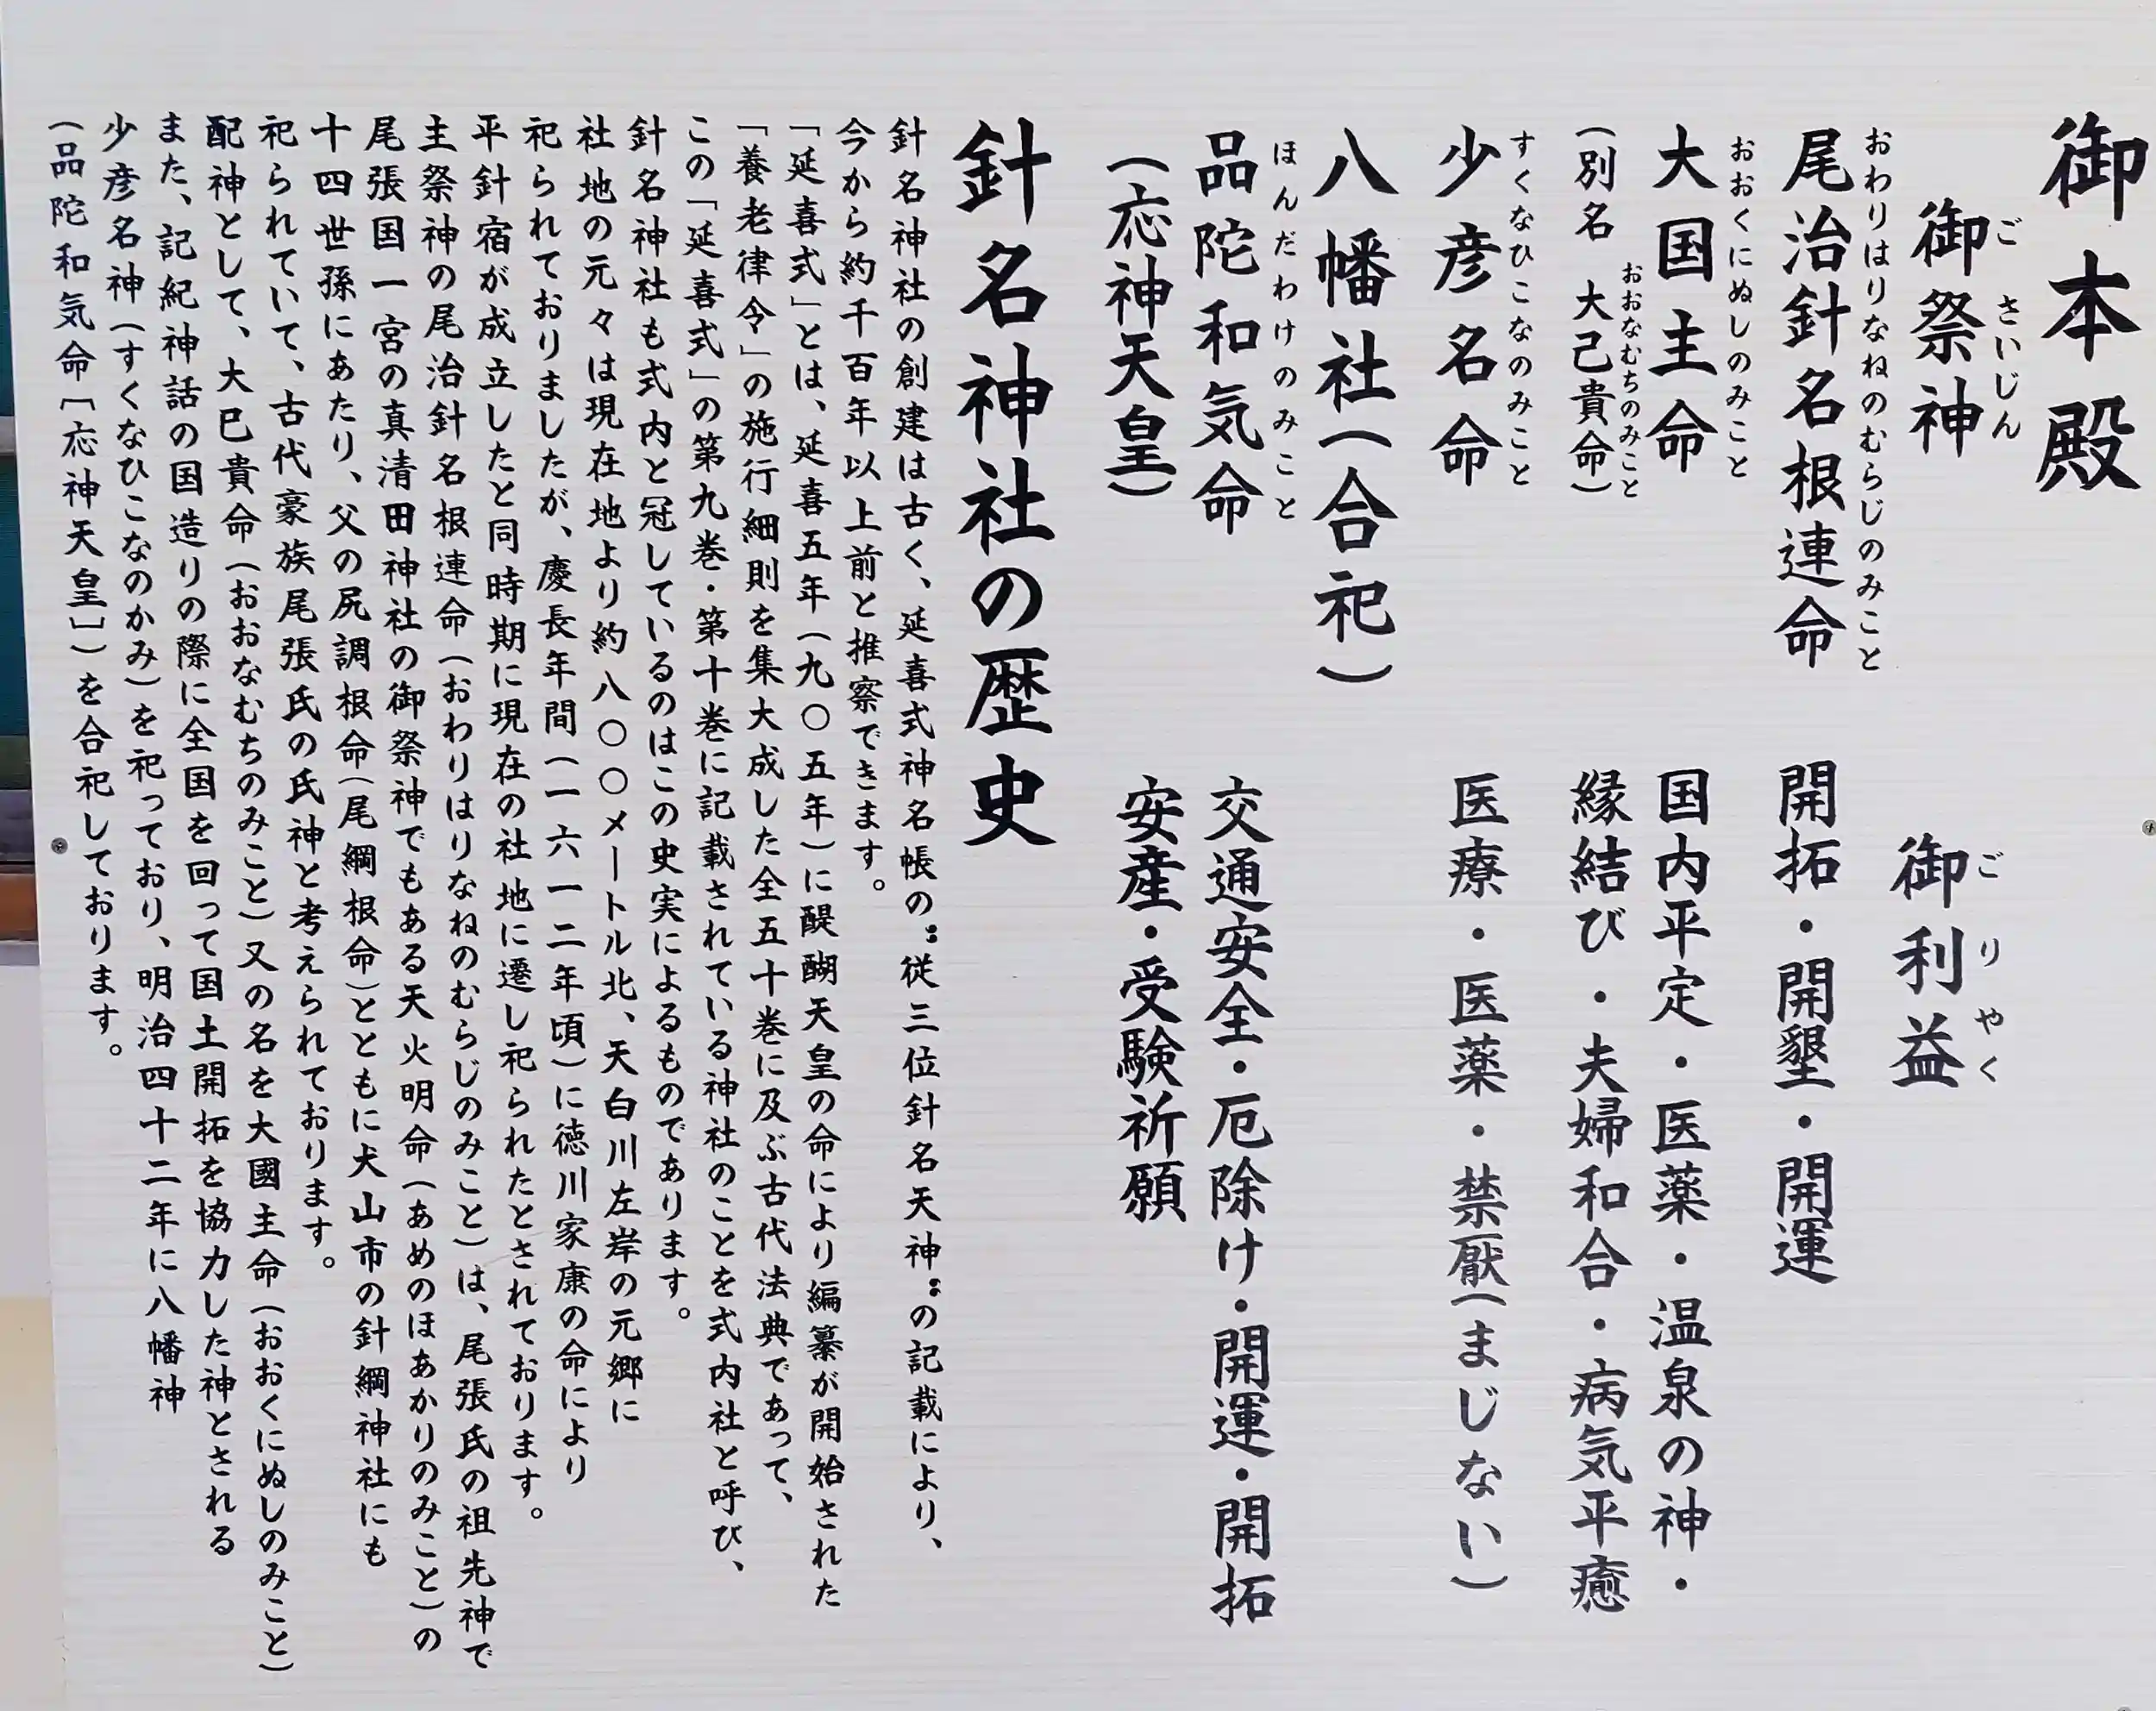 御本殿
御祭神
ごさいじん
御利益
ごりやく
尾治針名根連命
おわりはりなねのむらじのみこと
開拓・開墾・開運
大国主命
おおくにぬしのみこと
国内平定・医薬・温泉の神・
(別名 大己貴命)
おおなむちのみこと
縁結び・夫婦和合・病気平癒
少彦名命
すくなひこなのみこと
医療・医薬・禁厭(まじない)
八幡社(合祀)
品陀和気命
ほんだわけのみこと
交通安全・厄除け・開運・開拓
(応神天皇)
安産・受験祈願
針名神社の歴史
針名神社の創建は古く、延喜式神名帳の〝従三位針名天神〟の記載により、
今から約千百年以上前と推察できます。
「延喜式」とは、延喜五年(九〇五年)に醍醐天皇の命により編纂が開始された
「養老律令」の施行細則を集大成した全五十巻に及ぶ古代法典であって、
この「延喜式」の第九巻・第十巻に記載されている神社のことを式内社と呼び、
針名神社も式内と冠しているのはこの史実によるものであります。
社地の元々は現在地より約八〇〇メートル北、天白川左岸の元郷に
祀られておりましたが、慶長年間(一六一二年頃)に徳川家康の命により
平針宿が成立したと同時期に現在の社地に遷し祀られたとされております。
主祭神の尾治針名根連命(おわりはりなねのむらじのみこと)は、尾張氏の祖先神で
尾張国一宮の真清田神社の御祭神でもある天火明命(あめのほあかりのみこと)の
十四世孫にあたり、父の尻調根命(尾綱根命)とともに犬山市の針綱神社にも
祀られていて、古代豪族尾張氏の氏神と考えられております。
配神として、大巳貴命(おおなむちのみこと)又の名を大國主命(おおくにぬしのみこと)
また、記紀神話の国造りの際に全国を回って国土開拓を協力した神とされる
少彦名神(すくなひこなのかみ)を祀っており、明治四十二年に八幡神
(品陀和気命[応神天皇])を合祀しております。